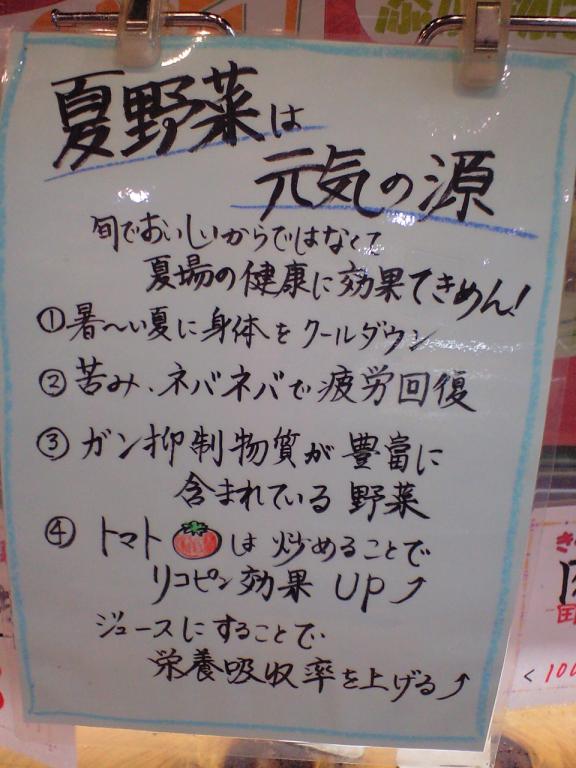 夏野菜は
元気の源
旬でおいしいからではなくて
夏場の健康に効果てきめん!
①暑〜い夏に身体をクールダウン
②苦み、ネバネバで疲労回復
③ガン抑制物質が豊富に
含まれている野菜
④トマトは炒めることで
リコピン効果UP↗
ジュースにすることで
栄養吸収率を上げる↗